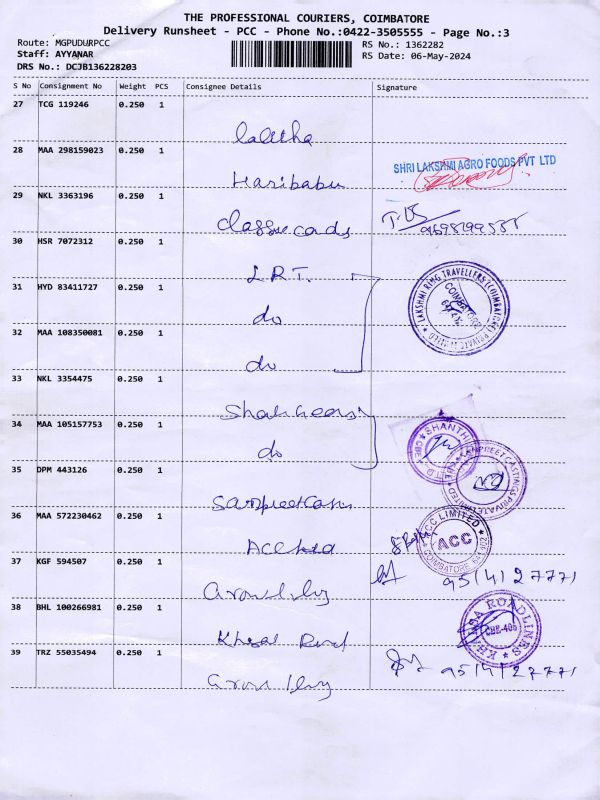 THE PROFESSIONAL COURIERS, COIMBATORE
Delivery Runsheet - PCC - Phone No.:0422-3505555 - Page No.:3
Route: MGPUDURPCC
RS No.: 1362282
Staff: AYYANAR
RS Date: 06-May-2024
DRS No.: DCJB136228203
S No Consignment No Weight PCS Consignee Details Signature
27 TCG 119246 0.250 1
lalitha
28 MAA 298159023 0.250 1
SHRI LAKSHMI AGRO FOODS PVT LTD
Haribabu
29 NKL 3363196 0.250 1
classic cads
30 HSR 7072312 0.250 1
L.R.T.
31 HYD 83411727 0.250 1
LAKSHMI RING TRAVELLERS (COIMBATORE) PRIVATE LIMITED
do
32 MAA 108350081 0.250 1
do
33 NKL 3354475 0.250 1
34 MAA 105157753 0.250 1
SHANTHI
do
35 DPM 443126 0.250 1
SANPREET CASTINGS PRIVATE LIMITED
36 MAA 572230462 0.250 1
ACC LIMITED
ACC
COIMBATORE
ACC Ltd
37 KGF 594507 0.250 1
95/4/27771
38 BHL 100266981 0.250 1
ROADLINES
CBE-406
39 TRZ 55035494 0.250 1
95/4/27771